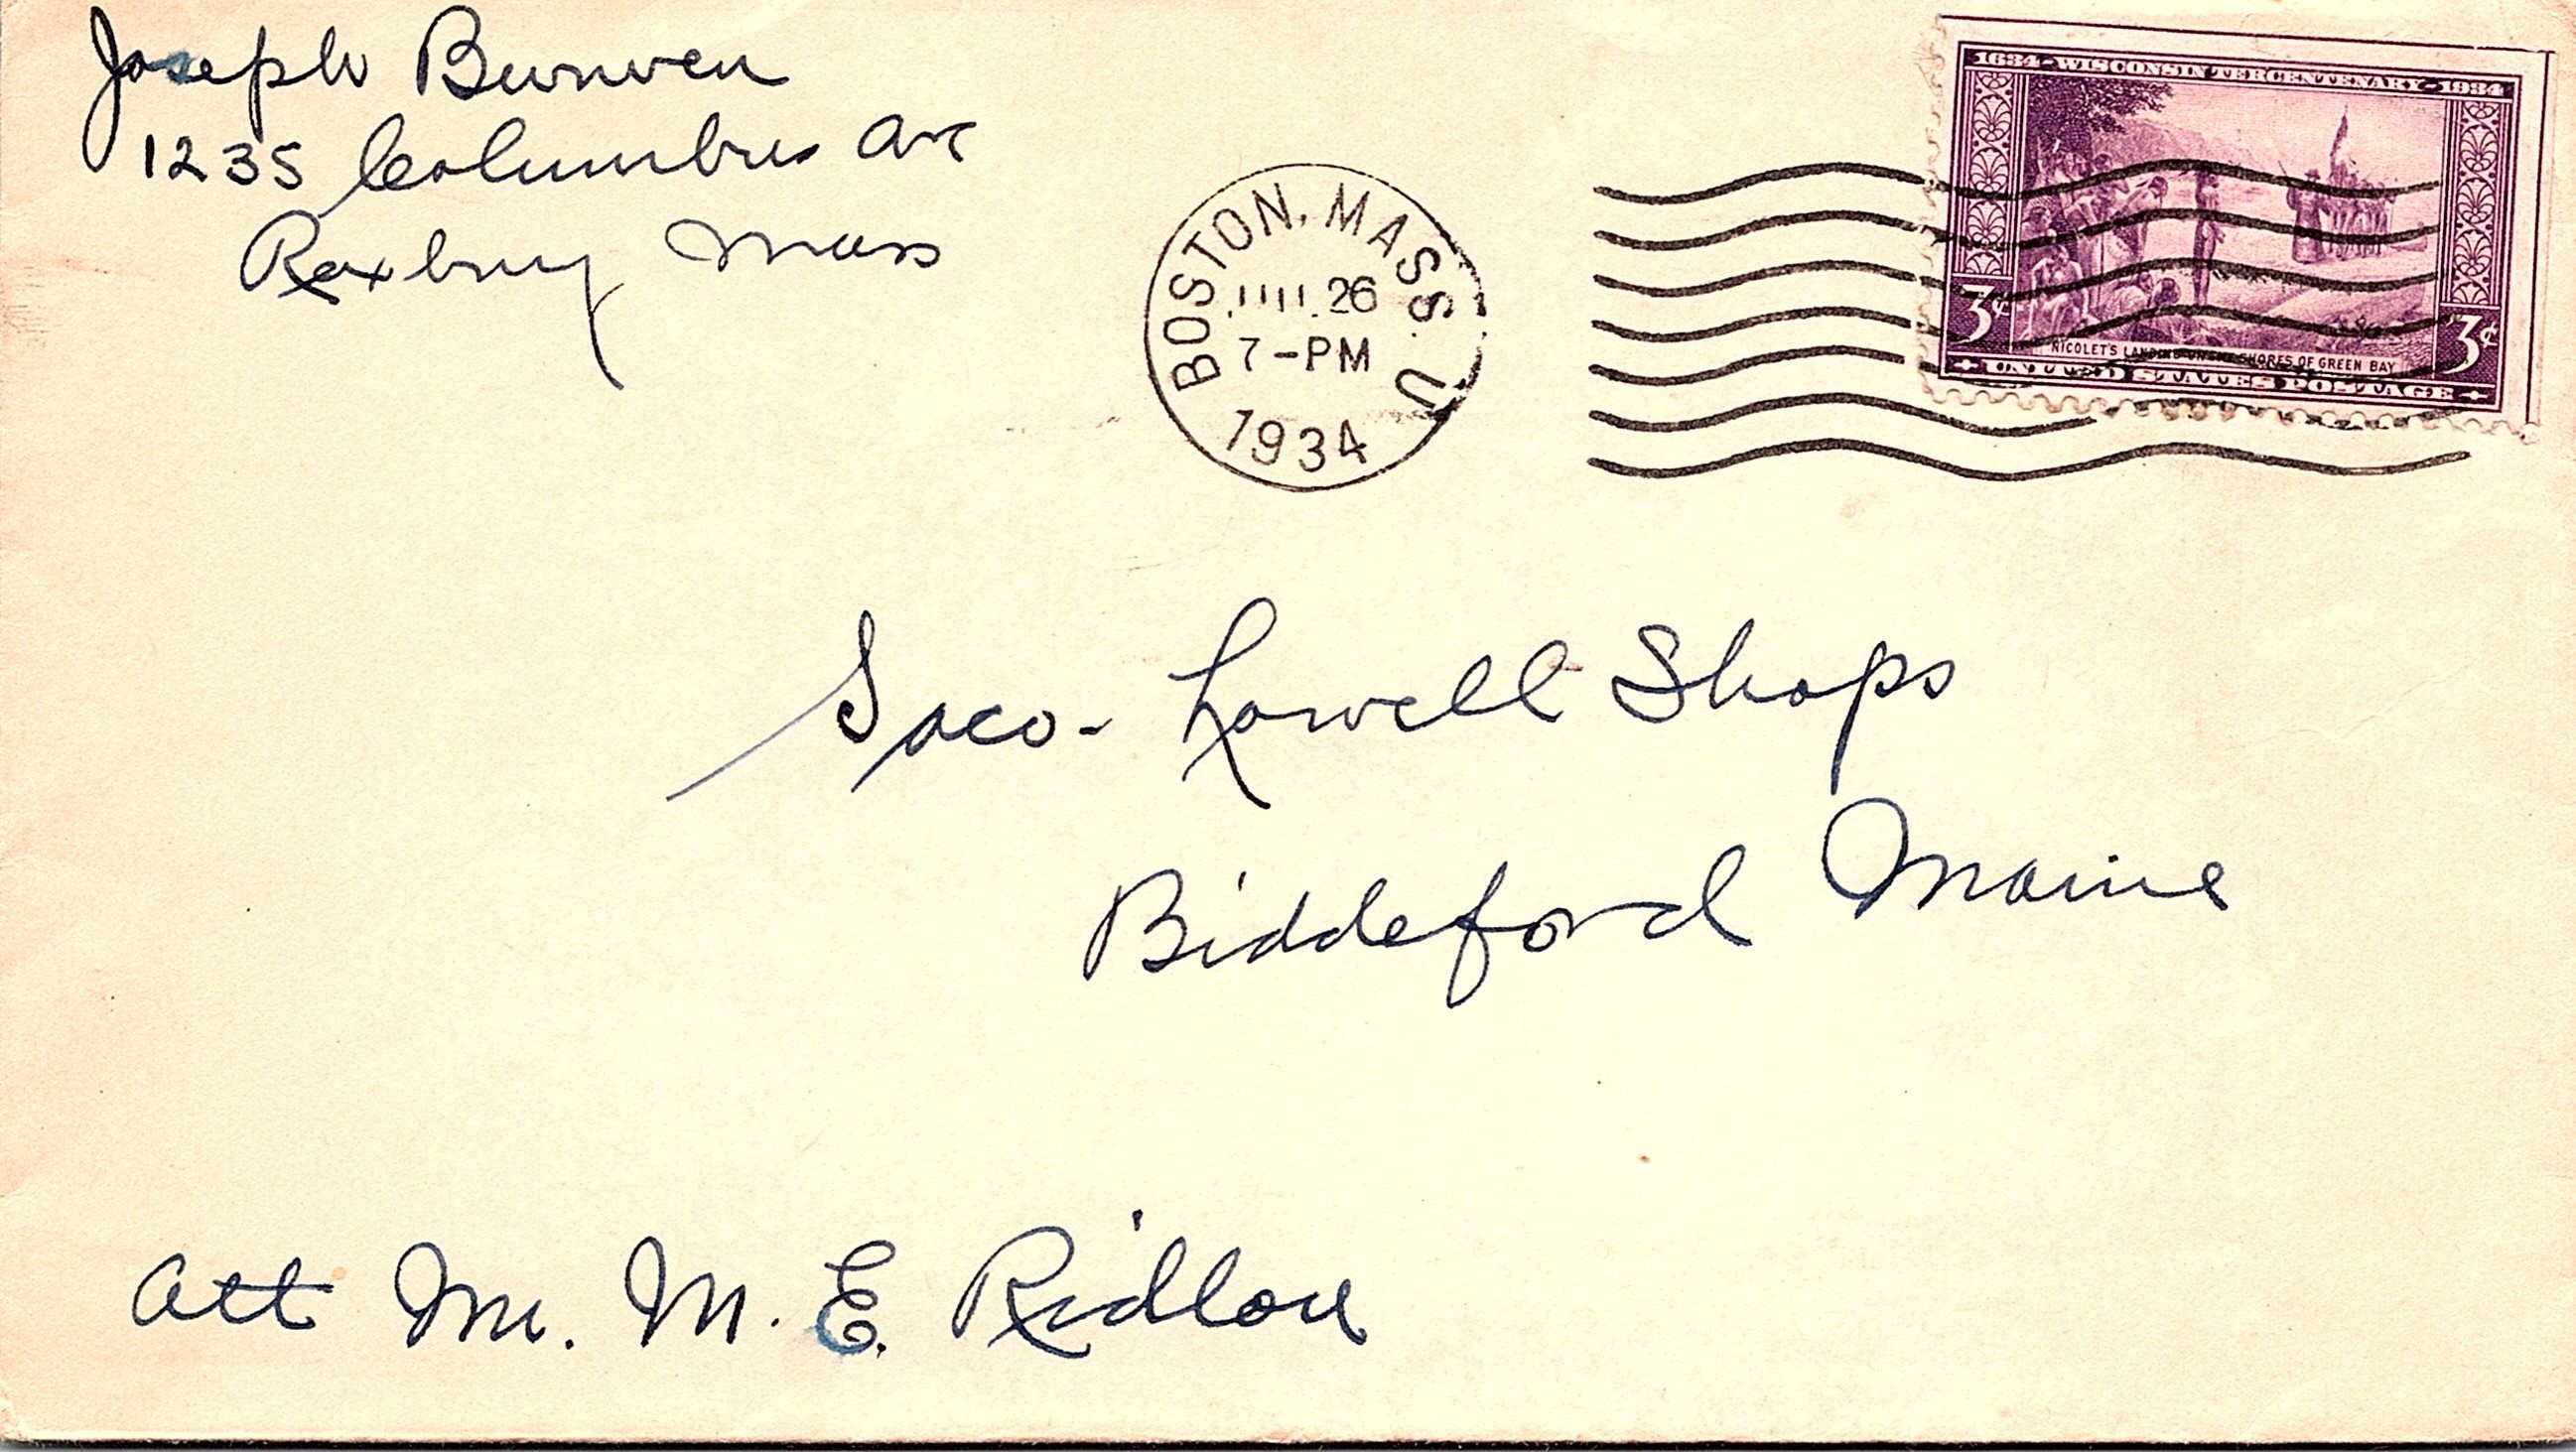 Joseph
1235 Columbus Ave
Roxbury Mass
BOSTON, MASS. U
26
7-PM
1934
1634-WISCONSIN TERCENTENARY-1934
3¢ 3¢
NICOLET'S LANDING ON THE SHORES OF GREEN BAY
UNITED STATES POSTAGE
Saco-Lowell Shops
Biddeford Maine
Att Mr. M. E. Ridlon